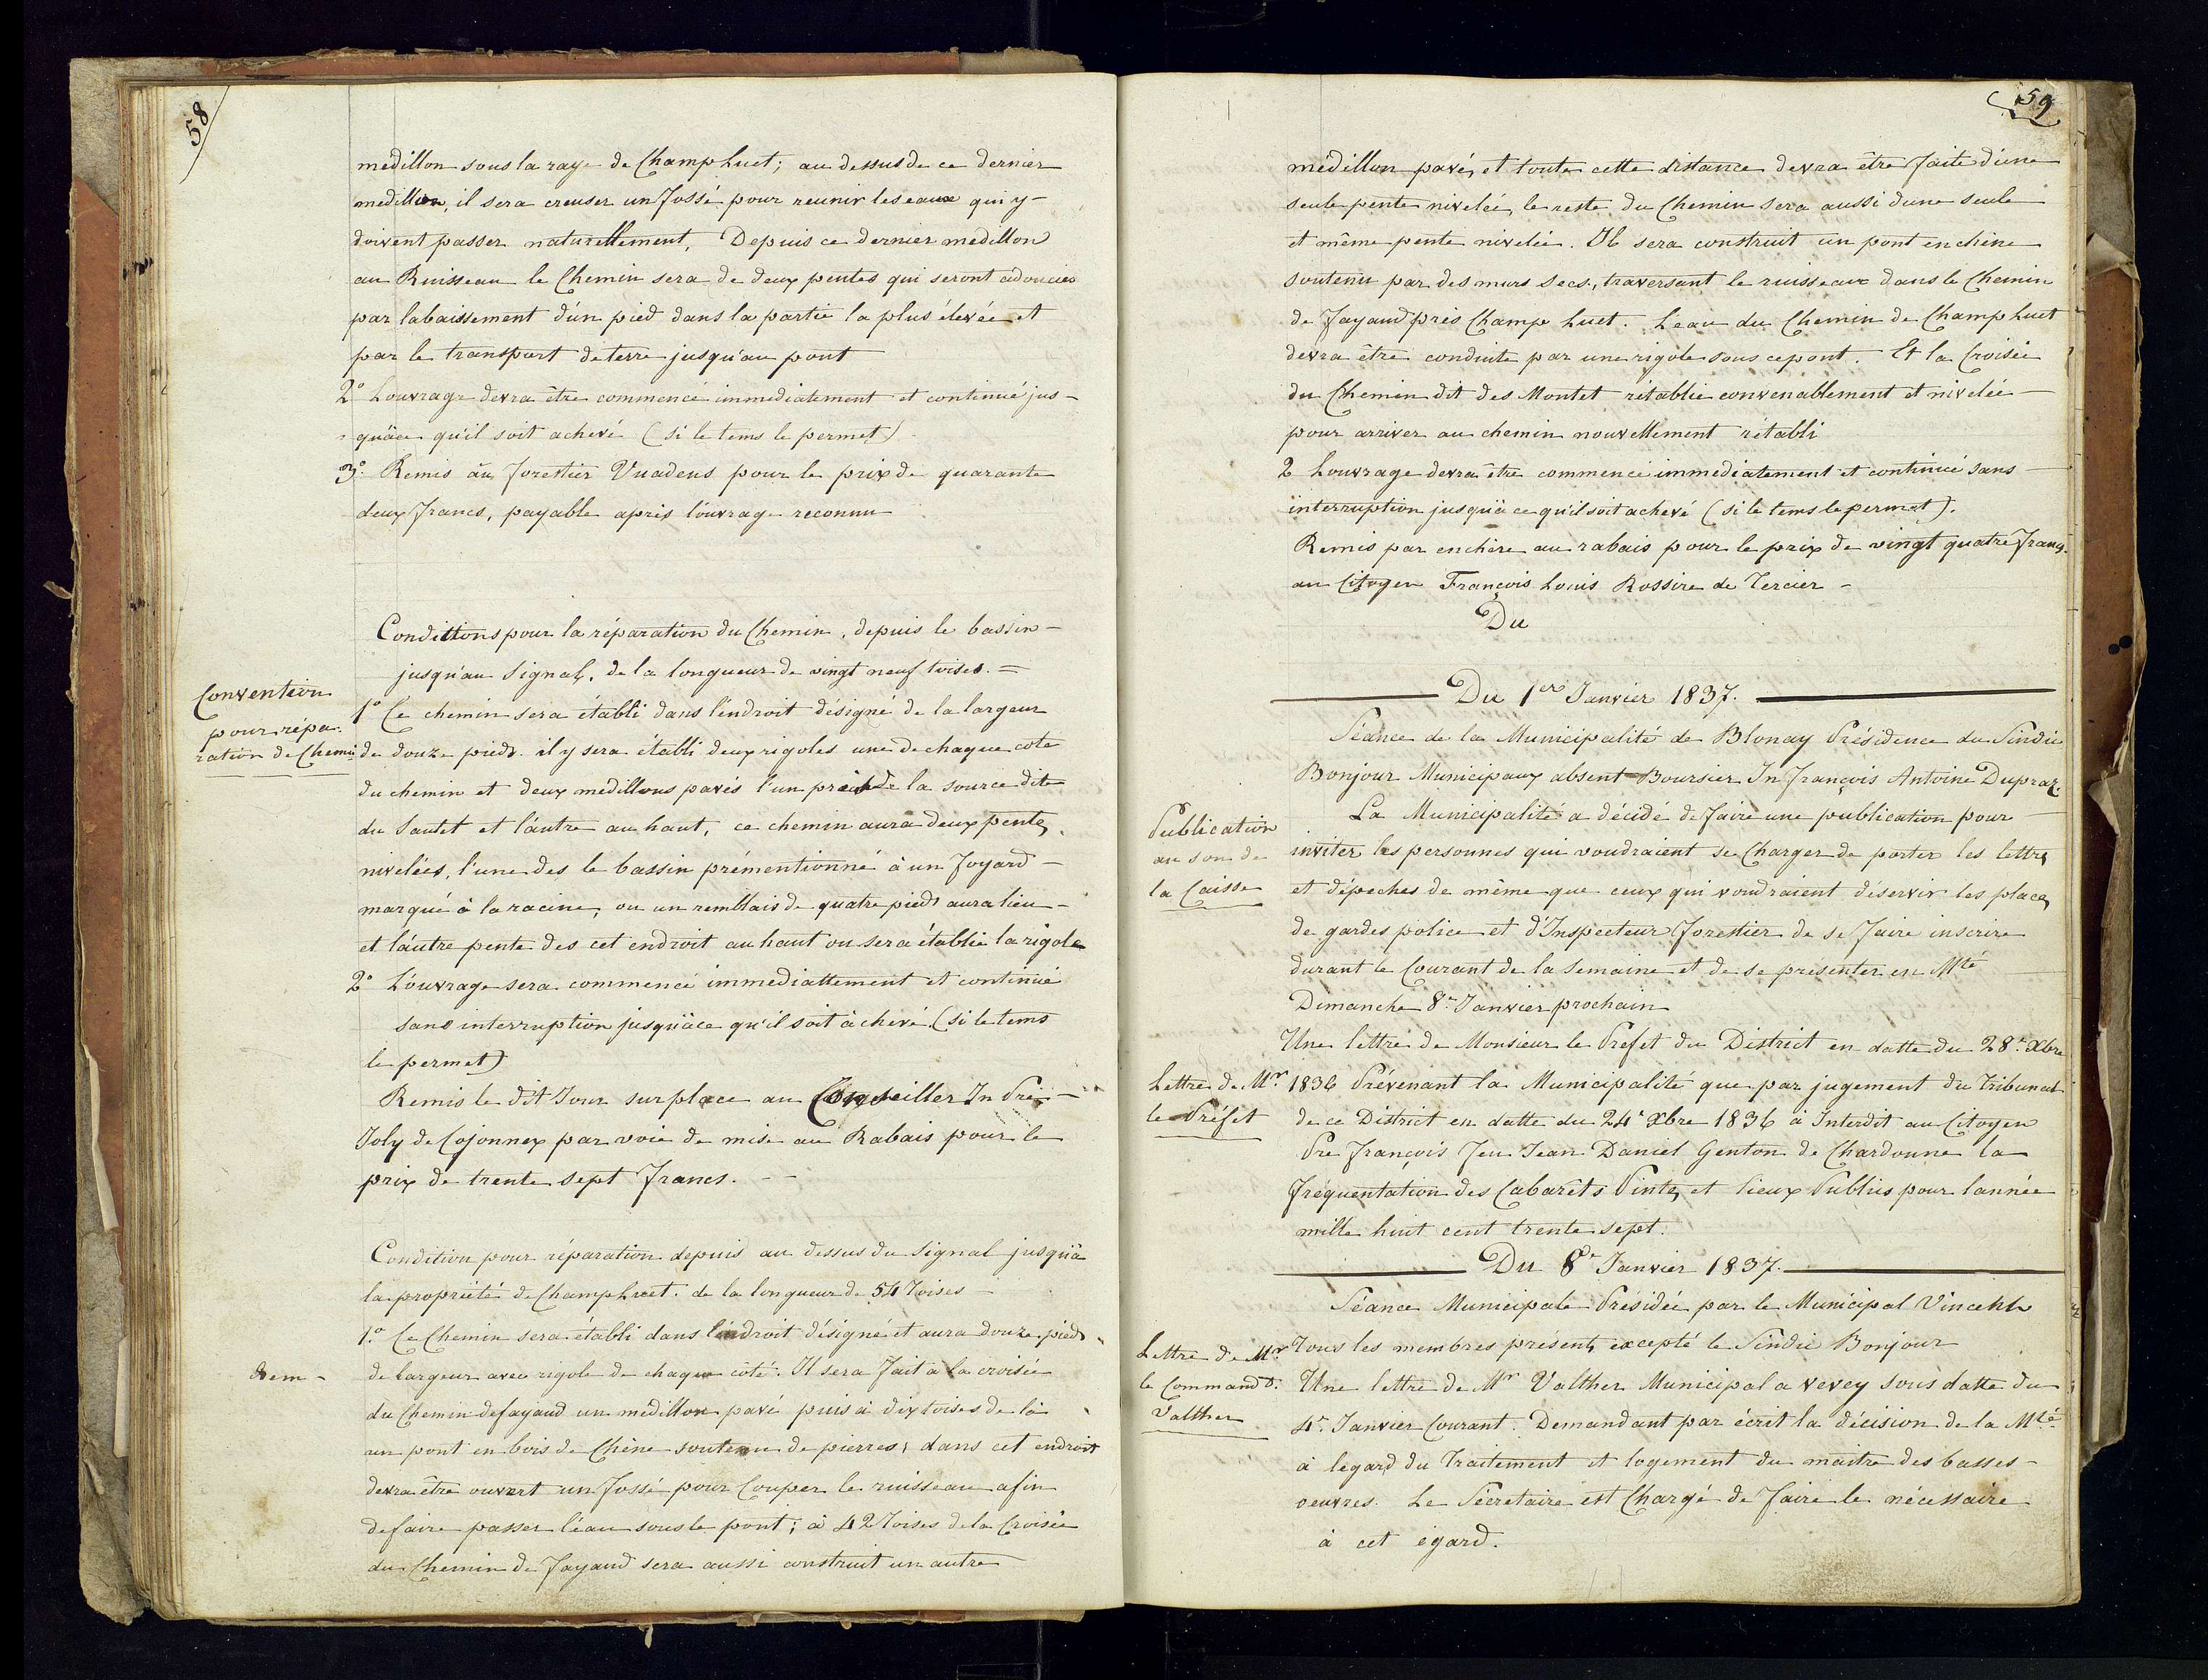 58
medillon sous la raye de Champ Luet; au dessus de ce dernier
medillon, il sera creuser un fossé pour reunir les eaux qui y
doivent passer naturellement, Depuis ce dernier medillon
au Ruisseau le Chemin sera de deux pentes qui seront adoucies
par labaissement d'un pied dans la partie la plus élevée et
par le transport de terre jusqu'au pont
2° Louvrage devra être commencé immediatement et continué jus-
quäce qu'il soit achevé (si le tems le permet)
3° Remis au forestier Vuadens pour le prix de quarante
deux francs, payable après l'ouvrage reconnu
Conditions pour la réparation du Chemin, depuis le bassin
jusqu'au Signal, de la longueur de vingt neuf toises. =
Convention
pour répa-
ration de Chemin
1° Ce chemin sera établi dans l'endroit désigné de la largeur
de douze pieds. il y sera établi deux rigoles une de chaque cote
du chemin et deux medillons pavés l'un près de la source dite
du Sautet et l'autre au haut, ce chemin aura deux pentes
nivelées, l'une des le bassin prémentionné à un foyard
marqué à la racine, ou un remblais de quatre pieds aura lieu
et l'autre pente des cet endroit au haut ou sera établie la rigole
2° L'ouvrage sera commencé immediattement et continué
sans interruption jusqu'äce qu'il soit àchevé (si le tems
le permet)
Remis le dit Jour sur place au Conseiller Jn Pre
Joly de Cojonnex par voie de mise au Rabais pour le
prix de trente sept francs.
Condition pour réparation depuis au dessus du Signal jusquä
la propriété de Champ Luet. de la longueur de 54 Toises
1° Ce Chemin sera établi dans l'endroit désigné et aura douze pieds
Idem
de largeur avec rigole de chaque côté. Il sera fait à la croisée
du Chemin de fayaud un medillon pavé puis à dix toises de là
un pont en bois de Chêne soutenu de pierres, dans cet endroit
devra être ouvert un fossé pour Couper le ruisseau afin
de faire passer l'eau sous le pont; à 42 Toises de la Croisée
du Chemin de fayaud sera aussi construit un autre
59
médillon pavé, et toute cette distance devra être faite d'une
seule pente nivelée, le reste du Chemin sera aussi dune seule
et même pente nivelée. Il sera construit un pont en chêne
soutenu par des murs secs, traversant le ruisseaux dans le Chemin
de fayaud près Champ Luet. Leau du Chemin de Champ Luet
devra être conduite par une rigole sous ce pont. Et la Croisée
du Chemin dit des Montet rétablie convenablement et nivelée
pour arriver au chemin nouvellement rétabli
2 Louvrage devra être commencé immediatement et continué sans
interruption jusquä ce qu'il soit achevé (si le tems le permet).
Remis par enchère au rabais pour le prix de vingt quatre francs
au Citoyen François Louis Rossire de Tercier
Du
Du 1er Janvier 1837.
Séance de la Municipalité de Blonay Présidence du Sindic
Bonjour Municipaux absent Boursier Jn François Antoine Dupraz.
Publication
au son de
la Caisse
La Municipalité a décidé de faire une publication pour
inviter les personnes qui voudraient se Charger de porter les lettres
et dépeches de même que ceux qui voudraient déservir les places
de gardes police et d'Inspecteur forestier de se faire inscrire
durant le Courant de la Semaine et de se présenter en Mté
Dimanche 8e Janvier prochain
Une lettre de Monsieur le Préfet du District en datte du 28e Xbre
Lettre de Mr
le Préfet
1836 Prévenant la Municipalité que par jugement du Tribunal
de ce District en datte du 24e Xbre 1836 à Interdit au Citoyen
Pre François feu Jean Daniel Genton de Chardonne la
fréquentation des Cabarets Pintes et lieux Publics pour lannée
mille huit cent trente sept.
Du 8e Janvier 1837.
Séance Municipale Présidée par le Municipal Vincent
Tous les membres présents excepté le Sindic Bonjour
Lettre de Mr
le Command.
Valther
Une lettre de Mr Valther Municipal a Vevey sous datte du
4e Janvier Courant. Demandant par écrit la décision de la Mté
à legard du Traitement et logement du maitre des basses-
oeuvres. Le Sécretaire est Chargé de faire le nécessaire
à cet égard.